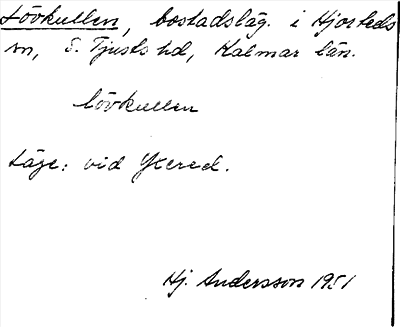 Lövkullen, bostadsläg. i Hjorteds
sn, S. Tjusts hd, Kalmar län.
lövkullen
Läge: vid Yxered.
Hj. Andersson 1951